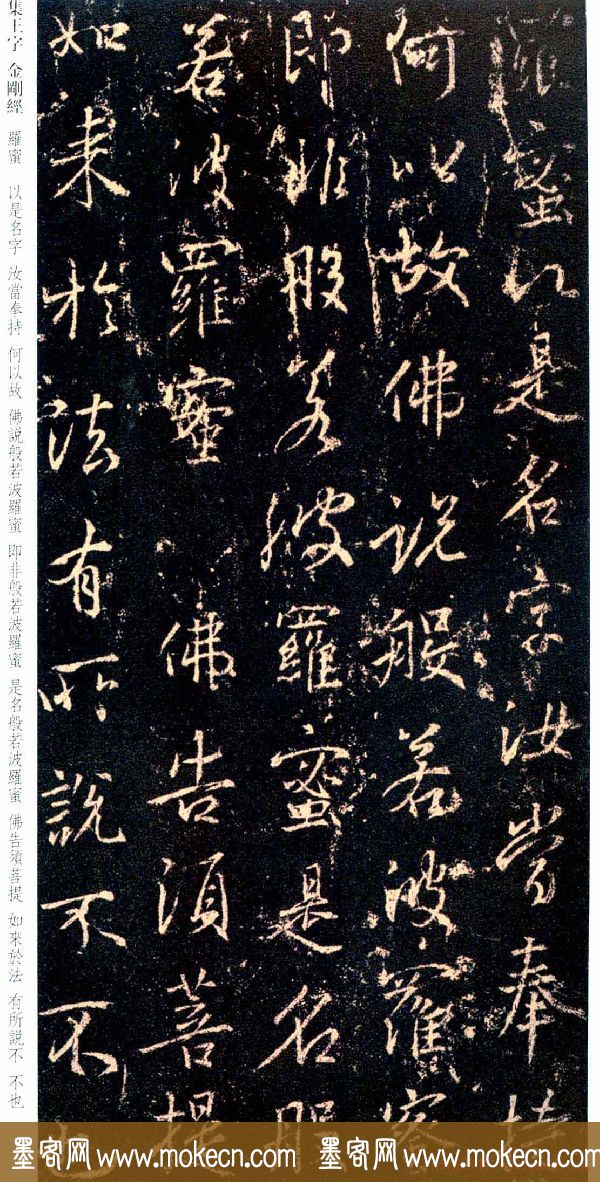 羅蜜以是名字汝當奉持
何以故佛説般若波羅蜜
即非般若波羅蜜是名般
若波羅蜜 佛告須菩提
如来於法有所説不不也
集王字 金剛經 羅蜜 以是名字 汝當奉持 何以故 佛説般若波羅蜜 即非般若波羅蜜 是名般若波羅蜜 佛告須菩提 如來於法 有所説不 不也
墨客网 www.mokecn.com 墨客网 www.mokecn.com